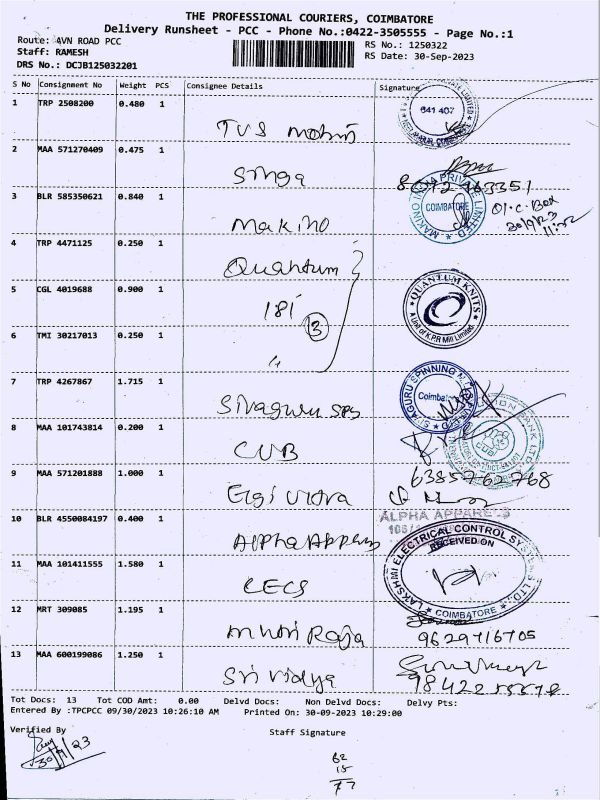 THE PROFESSIONAL COURIERS, COIMBATORE
Delivery Runsheet - PCC - Phone No.:0422-3505555 - Page No.:1
Route: AVN ROAD PCC
RS No.: 1250322
Staff: RAMESH
RS Date: 30-Sep-2023
DRS No.: DCJB125032201
S No Consignment No Weight PCS Consignee Details Signature
1 TRP 2508200 0.480 1
641 407
TVS
2 MAA 571270409 0.475 1
Singa
3 BLR 585350621 0.840 1
MAKINO INDIA PRIVATE LIMITED
COIMBATORE
30/9/23
Makino
4 TRP 4471125 0.250 1
Quantum
5 CGL 4019688 0.900 1
QUANTUM KNITS
A Unit of K.P.R Mill Limited
181
3
6 TMI 30217013 0.250 1
"
7 TRP 4267867 1.715 1
SIVAGURU SPINNING
Sivaguru
8 MAA 101743814 0.200 1
CUB
9 MAA 571201888 1.000 1
6385762768
Elgi
10 BLR 4550084197 0.400 1
ALPHA APPARELS
Alpha
11 MAA 101411555 1.580 1
LAKSHMI ELECTRICAL CONTROL SYSTEMS LTD.,
RECEIVED ON
COIMBATORE
LECS
12 MRT 309085 1.195 1
Raja
9629716705
13 MAA 600199086 1.250 1
Sri Vidya
Tot Docs: 13 Tot COD Amt: 0.00 Delvd Docs: Non Delvd Docs: Delvy Pts:
Entered By :TPCPCC 09/30/2023 10:26:10 AM Printed On: 30-09-2023 10:29:00
Verified By
Staff Signature
30/9/23
62
15
77